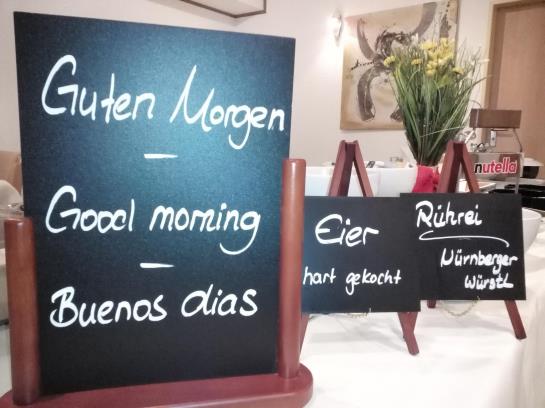 Guten Morgen
–
Good morning
–
Buenos dias
Eier
hart gekocht
Rührei
Nürnberger
Würstl
nutella